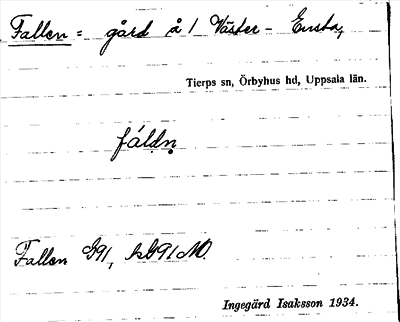 Fallen = gård å 1 Väster - Ensta,
Tierps sn, Örbyhus hd, Uppsala län.
fáldn̥
Fallen G91, hG91M.
Ingegärd Isaksson 1934.